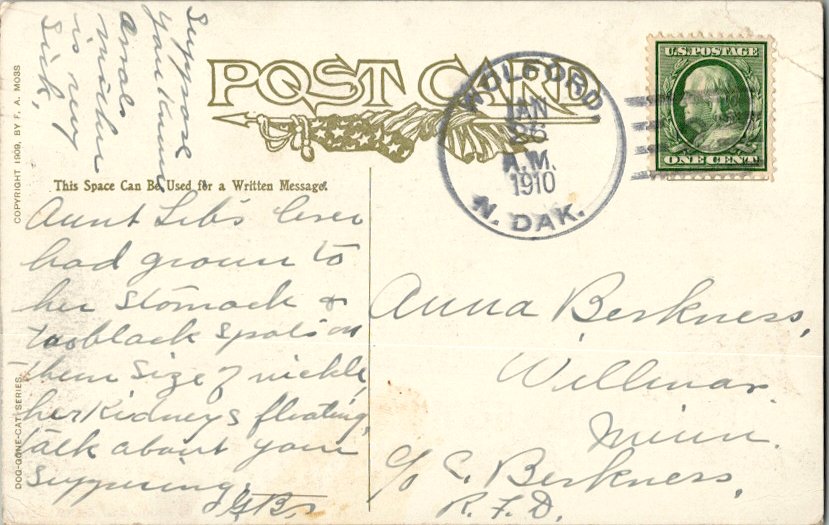 POST CARD
WOLFORD
JAN
26
A.M.
1910
N. DAK.
U.S. POSTAGE
ONE CENT
COPYRIGHT 1909, BY F. A. MOSS
DOG-GONE-CAT SERIES
This Space Can Be Used for a Written Message.
Suppose
you know
mother
is very
Sick,
Aunt Lib's liver
had grown to
her stomack &
too black spots on
them size of nickle,
her kidneys floating,
talk about your
suffering.
Anna Berkness,
Willmar.
Minn.
c/o C. Berkness,
R. F. D.